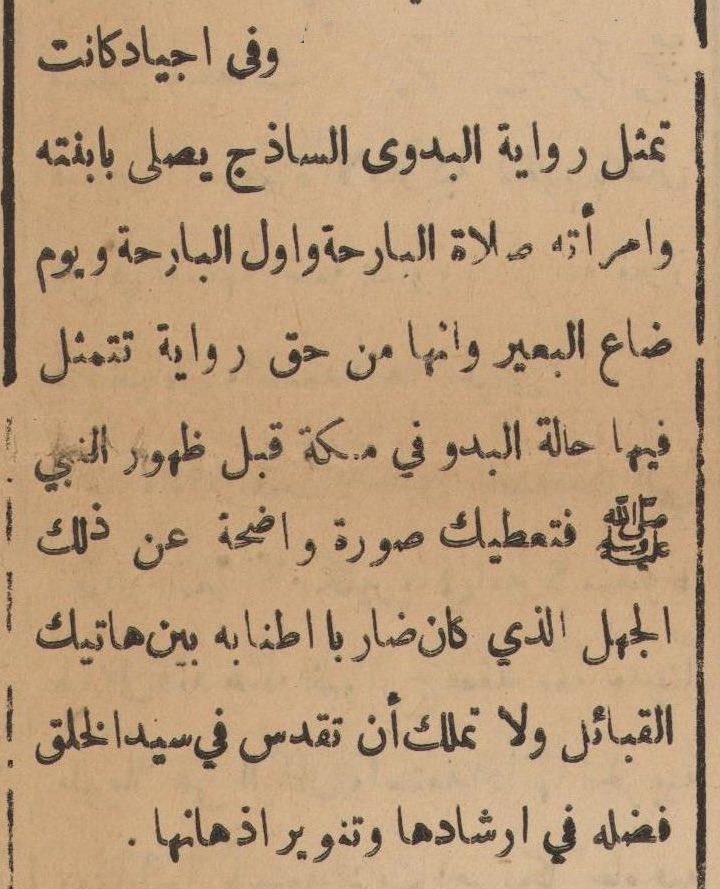 وفى اجياد كانت
تمثل رواية البدوى الساذج يصلى بابنته
وامرأته صلاة البارحة واول البارحة ويوم
ضاع البعير وانها من حق رواية تتمثل
فيها حالة البدو في مكة قبل ظهور النبي
ﷺ فتعطيك صورة واضحة عن ذلك
الجهل الذي كان ضاربا اطنابه بين هاتيك
القبائل ولا تملك أن تقدس في سيد الخلق
فضله في ارشادها وتنوير اذهانها .